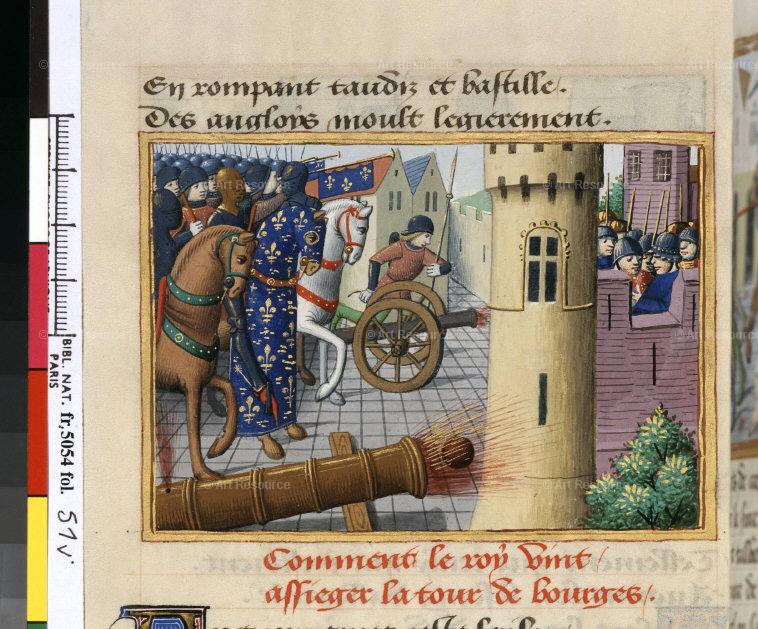 En rompant taudiz et bastille.
Des angloys moult legierement.
Comment le roy vint
assieger la tour de bourges.
BIBL. NAT. fr, 5054 fol. 51v
PARIS
© Art Resource